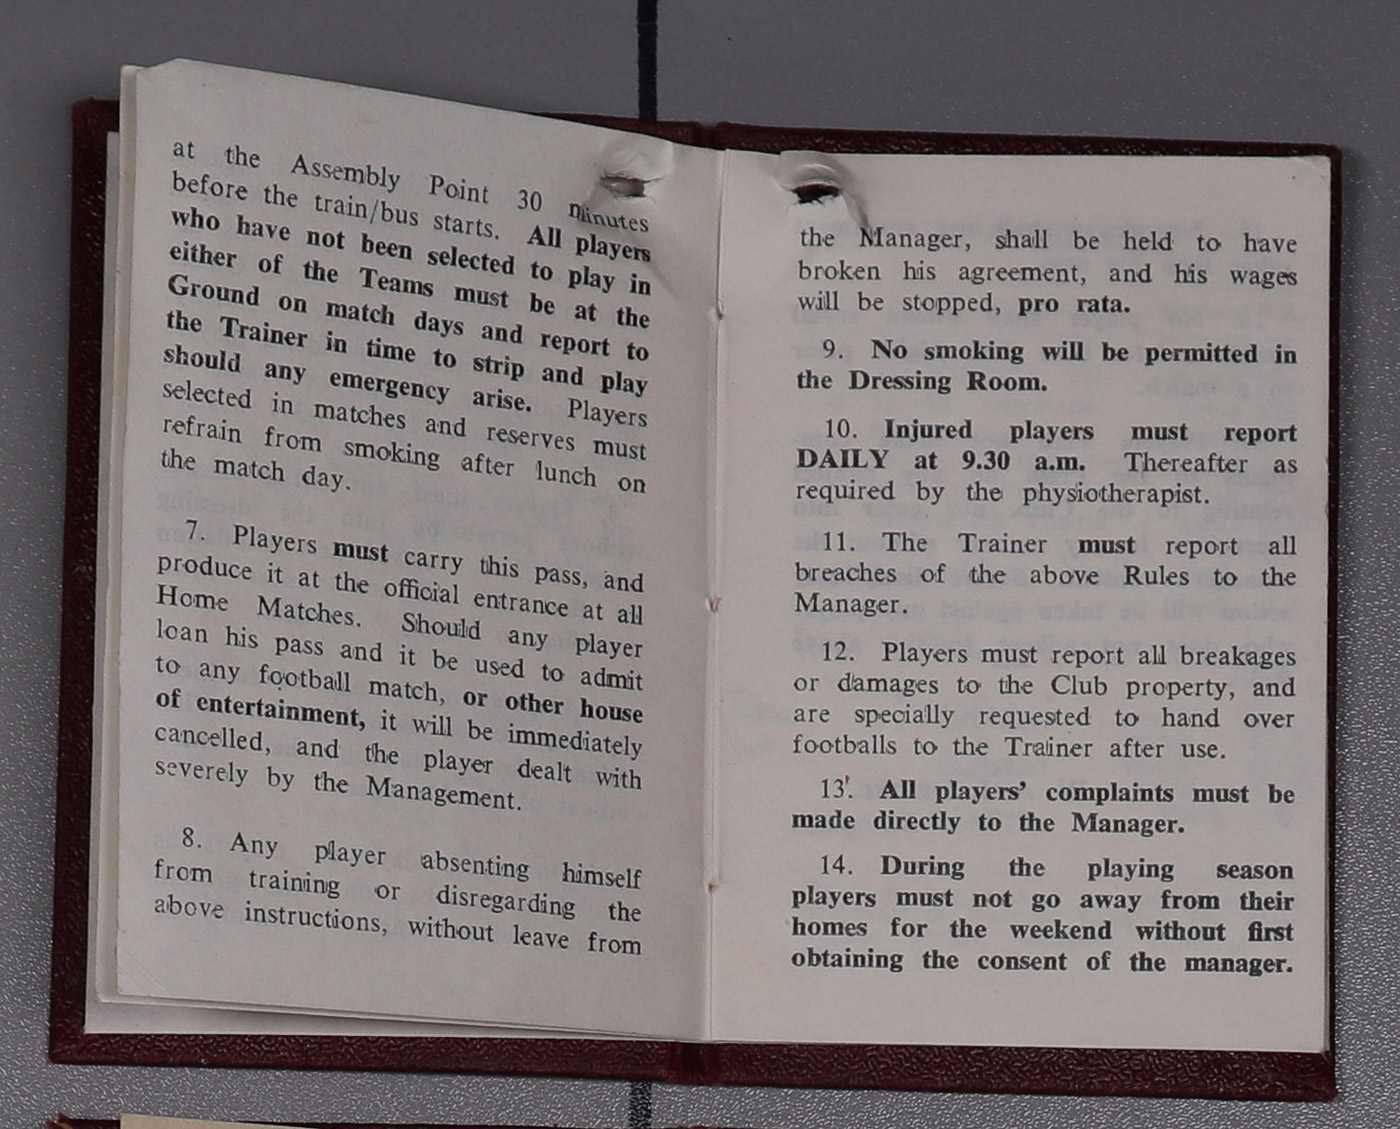 at the Assembly Point 30 minutes
before the train/bus starts. All players
who have not been selected to play in
either of the Teams must be at the
Ground on match days and report to
the Trainer in time to strip and play
should any emergency arise. Players
selected in matches and reserves must
refrain from smoking after lunch on
the match day.
7. Players must carry this pass, and
produce it at the official entrance at all
Home Matches. Should any player
loan his pass and it be used to admit
to any football match, or other house
of entertainment, it will be immediately
cancelled, and the player dealt with
severely by the Management.
8. Any player absenting himself
from training or disregarding the
above instructions, without leave from
the Manager, shall be held to have
broken his agreement, and his wages
will be stopped, pro rata.
9. No smoking will be permitted in
the Dressing Room.
10. Injured players must report
DAILY at 9.30 a.m. Thereafter as
required by the physiotherapist.
11. The Trainer must report all
breaches of the above Rules to the
Manager.
12. Players must report all breakages
or damages to the Club property, and
are specially requested to hand over
footballs to the Trainer after use.
13. All players' complaints must be
made directly to the Manager.
14. During the playing season
players must not go away from their
homes for the weekend without first
obtaining the consent of the manager.